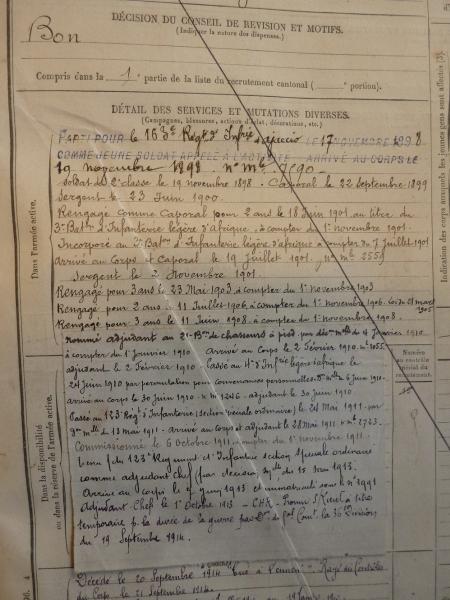 DÉCISION DU CONSEIL DE REVISION ET MOTIFS.
(Indiquer la nature des dispenses.)
Bon
Compris dans la 1e partie de la liste du recrutement cantonal ( portion).
DÉTAIL DES SERVICES ET MUTATIONS DIVERSES.
(Campagnes, blessures, actions d'éclat, décorations, etc.)
PARTI POUR le 163e Régt d'Infrie LE 17 NOVEMBRE 1898
COMME JEUNE SOLDAT APPELÉ A L'ACTIVITÉ ARRIVÉ AU CORPS LE
19 novembre 1898. n° mle
Soldat de 2e classe le 19 novembre 1898. Caporal le 22 Septembre 1899
Sergent le 23 Juin 1900.
Rengagé comme Caporal pour 2 ans le 18 Juin 1901 au titre du
3e Baton d'Infanterie légère d'Afrique, à compter du 1er novembre 1901.
Incorporé au 3e Baton d'Infanterie légère d'afrique à compter du 7 Juillet 1901
Arrivé au Corps Caporal le 19 Juillet 1901. n° mle 5559
Sergent le 2 Novembre 1901.
Rengagé pour 3 ans le 23 Mai 1903 à compter du 1er novembre 1903
Rengagé pour 2 ans le 11 Juillet 1906, à compter du 1er novembre 1906. Loi du mars 1905
Rengagé pour 3 ans le 11 Juin 1908 à compter du 1er novembre 1908.
nommé adjudant au 21e Bon de chasseurs à pied par déon mlle du 4 Janvier 1910
à compter du 1er Janvier 1910 Arrivé au corps le 2 Février 1910. n°
adjudant le 2 Février 1910. Passé au 4e d'Infrie légère d'afrique le
24 Juin 1910 par permutation pour convenances personnelles.
arrivé au corps le 30 Juin 1910 n° m 1246. adjudant le 30 Juin 1910
Passé au 123e Régt d'Infanterie (section spéciale ordinaire) le 24 Mai 1911. par
don mlle du 13 Mai 1911. Arrivé au corps et adjudant le 28 Mai 1911 n° mle 2723.
Commissionné le 6 Octobre 1911 à compter du 1er novembre 1911.
Venu du 123e Régiment d'Infanterie section spéciale ordinaire
comme adjudant Chef par décision mlle du 15 1913.
Arrivé au corps le 1913 et immatriculé sous le n° 1991
Adjudant Chef le 1er Octobre 1913 - CHR - Promu S/Lieut à titre
temporaire p. la durée de la guerre par Don du Gal Comt. la 36e Division
du 19 Septembre 1914.
Décédé le 20 Septembre 1914 Rayé des Contrôles
du Corps le 21 Septembre 1914.
Dans l'armée active.
Dans la disponibilité
ou dans la réserve de l'armée active.
Indication des corps auxquels les jeunes gens sont affectés (3).
Numéro
au contrôle
spécial du
recrutement.